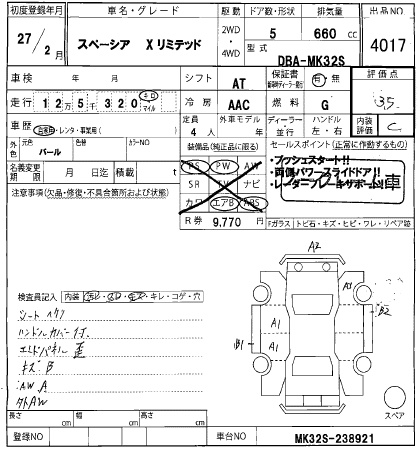 初度登録年月 車名・グレード 駆動 ドア数・形状 排気量 出品NO
27/2月 スペーシア Xリミテッド 2WD・4WD 5 660cc 4017
型式 DBA-MK32S
車検 年 月 シフト AT 保証書 有・無 評価点
走行 12万5千320 キロ マイル 冷房 AAC 燃料 G 35
車歴 自家用・レンタ・事業用( ) 定員 4人 外車モデル 年 ディーラー 並行 ハンドル 左・右 内装評価 C
外色 元色 パール 色替 カラーNO
装備品(純正品に限る) セールスポイント(正常に作動するもの)
名義変更期限 月 日迄 積載 t
PS PW AW
SR TV ナビ
カワ エアB ABS
・プッシュスタート!!
・両側パワースライドドア!!
・レーダーブレーキサポート!!
車
注意事項(欠品・修復・不具合箇所および状態)
R券 9,770円
Fガラス トビ石・キズ・ヒビ・ワレ・リペア跡
A2
検査員記入 内装 汚レ・コゲ・穴
シートヘタリ
ハンドルカバー付
キズB
AW A
社外AW
A1
A1
A1
B1
B2
スペア
長さ cm 幅 cm 高さ cm
登録NO 車台NO MK32S-238921